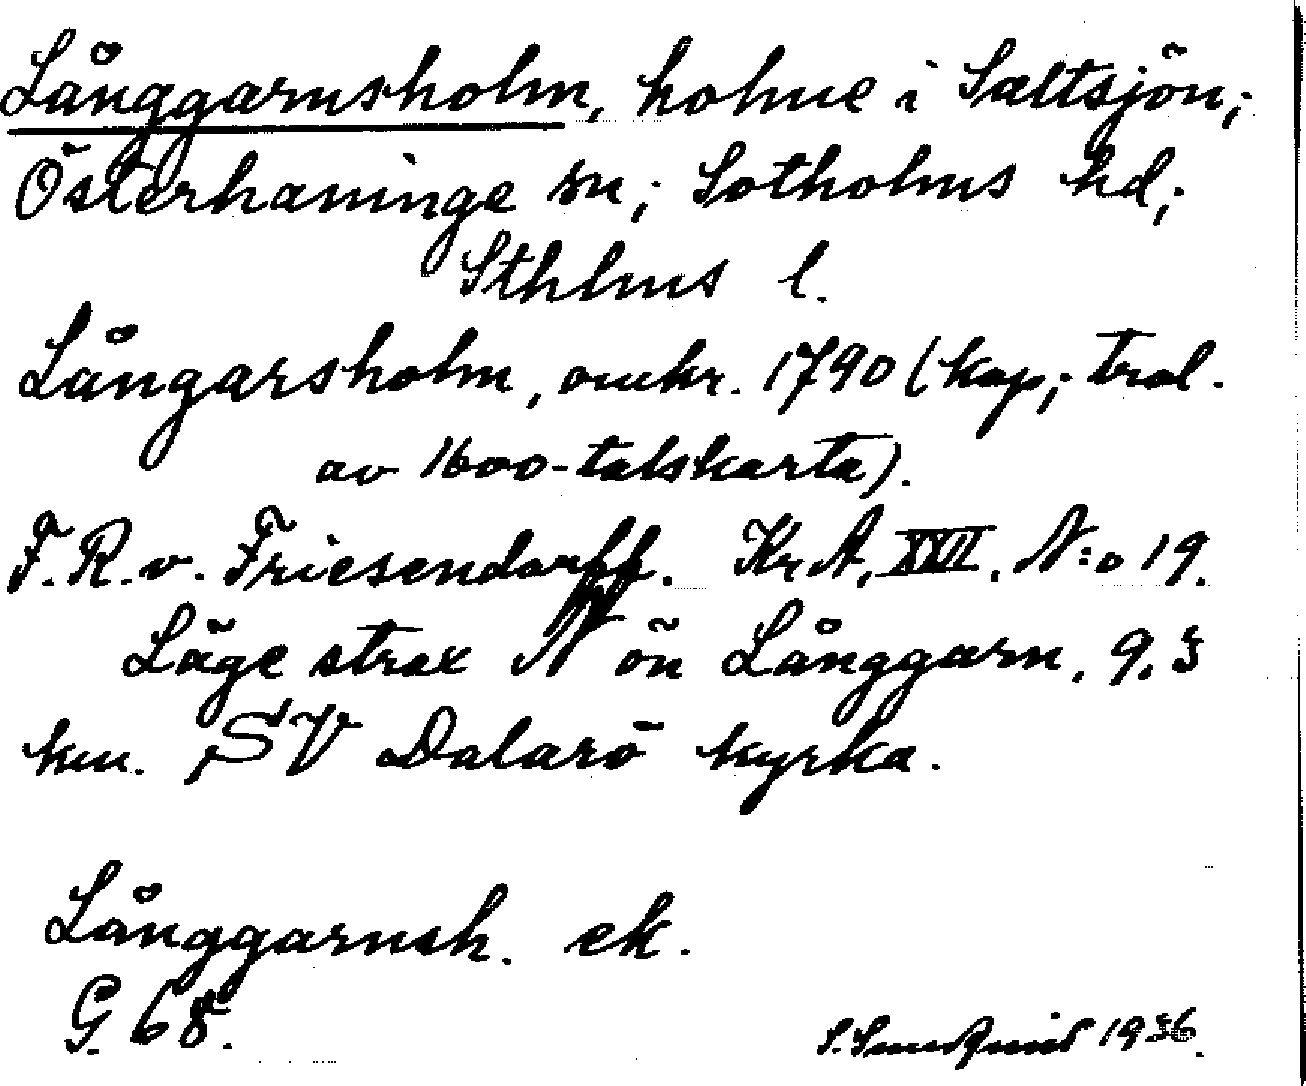 Långgarnsholm, holme i Saltsjön;
Österhaninge sn; Sotholms hd;
Sthlms l.
Långarsholm, omkr. 1790 (kop; trol.
av 1600-talskarta).
F.R.v. Friesendorff. KrA, XVII. N:o 19.
Läge strax N ön Långgarn. 9,3
km. SV Dalarö kyrka.
Långgarnsh. ek.
G. 68.
S. 1936.